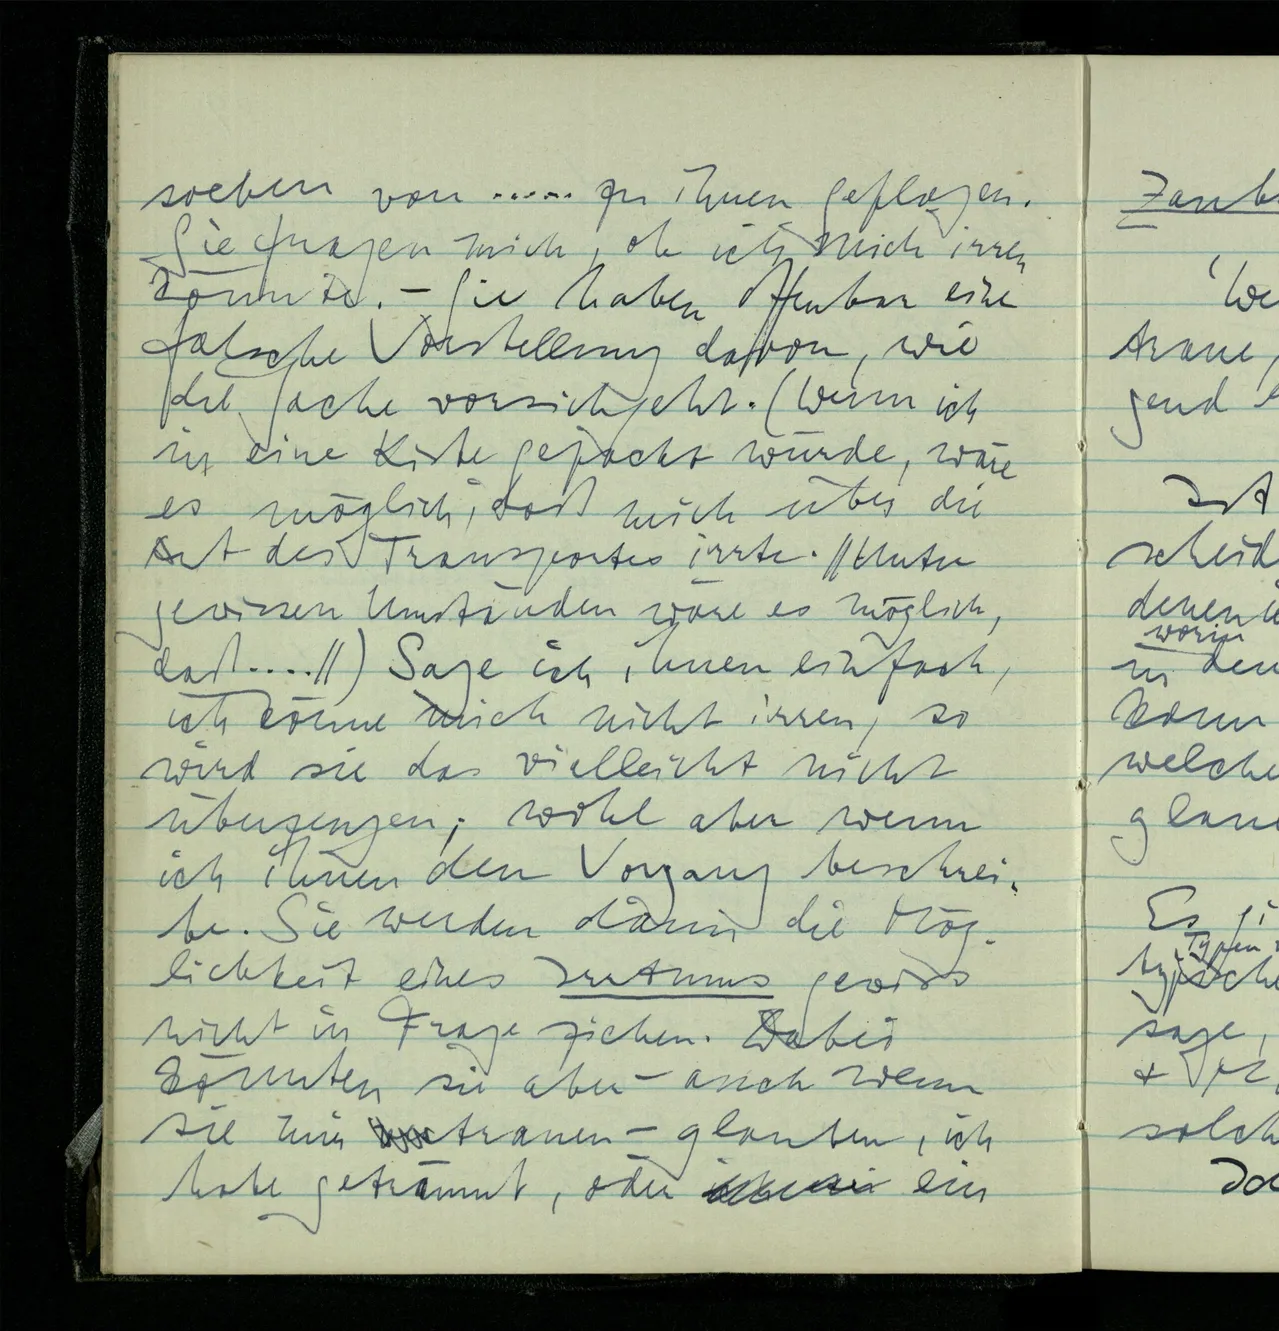 soeben von ..... zu ihnen geflogen.
Sie fragen mich, ob ich mich irren
könnte. – Sie haben offenbar eine
falsche Vorstellung davon, wie
die Sache vorsichgeht. (Wenn ich
in eine Kiste gepackt würde, wäre
es möglich, daß mich über die
Art des Transportes irrte. //Unter
gewissen Umständen wäre es möglich,
daß....//) Sage ich ihnen einfach,
ich könne mich nicht irren, so
wird sie das vielleicht nicht
überzeugen; wohl aber wenn
ich ihnen den Vorgang beschrei-
be. Sie werden dann die Mög-
lichkeit eines Irrtums gewiss
nicht in Frage ziehen. Dabei
könnten sie aber – auch wenn
sie mir trauen – glauben, ich
habe geträumt, oder ein
Zaub
'We
traue,
gend
Ist
scheid
denen
worin
in den
kann
welche
glau
Es gi
Typen
typische
sage,
solch